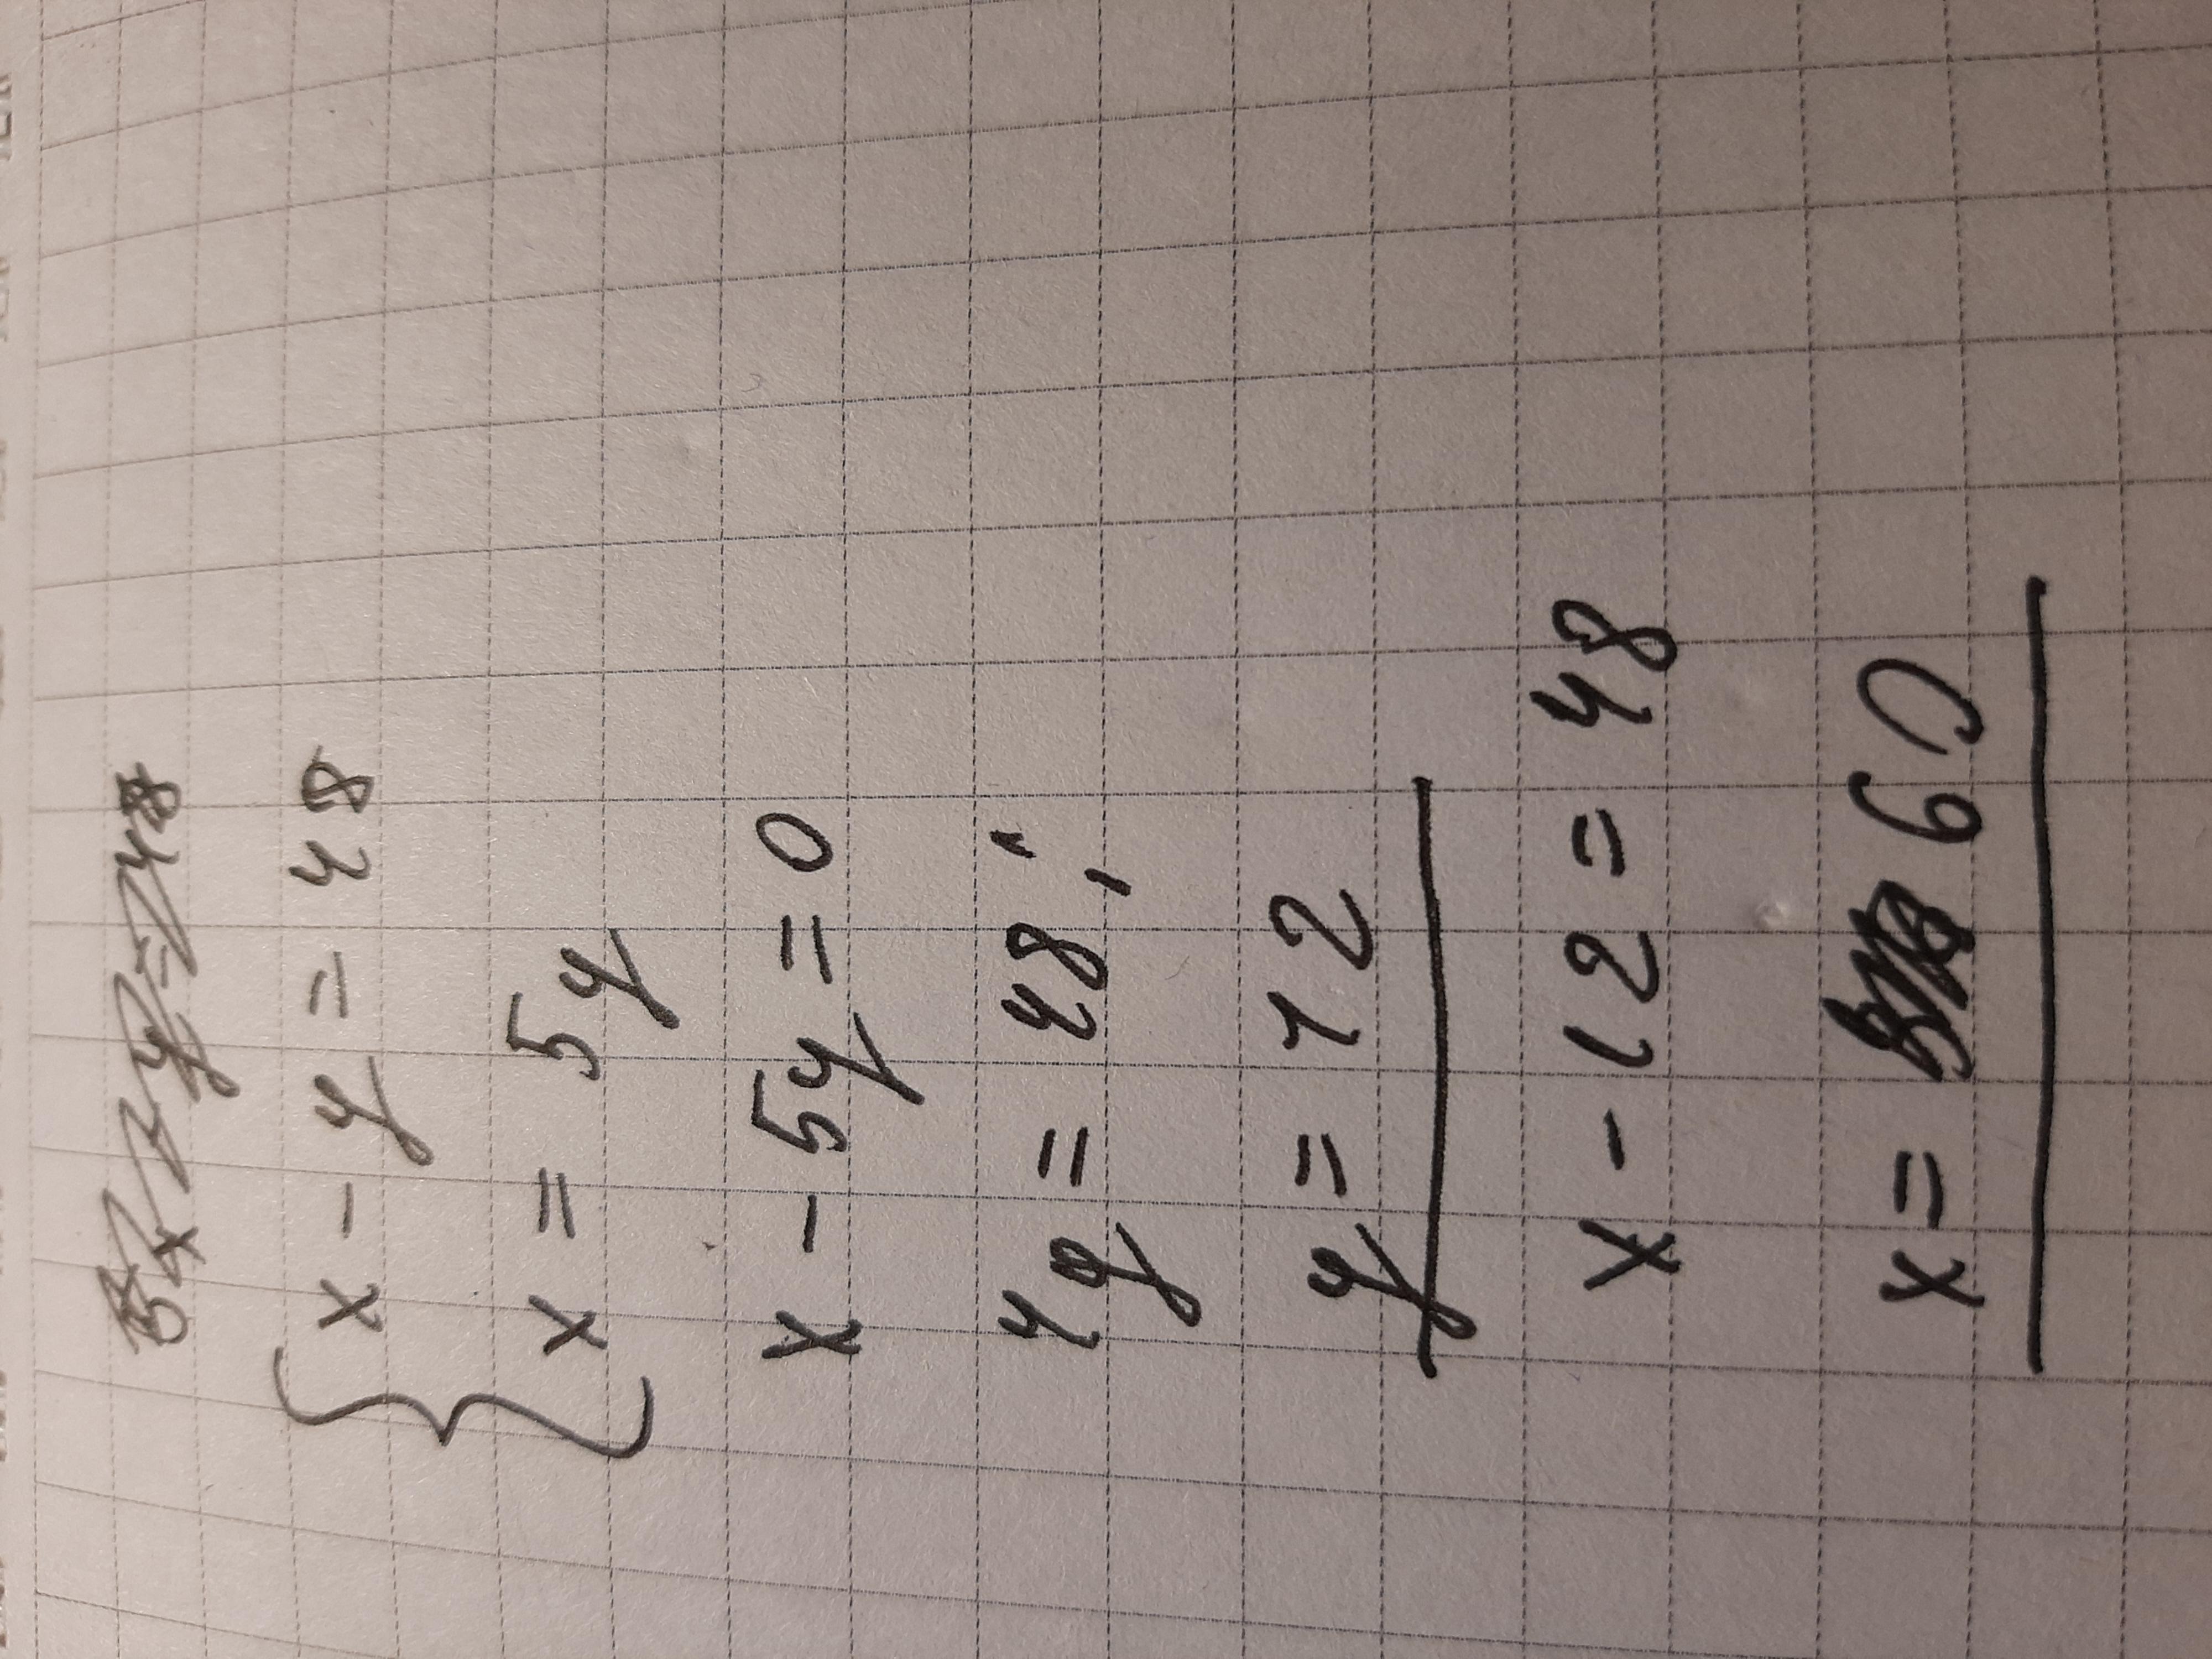 x - y = 48
x = 5y
x - 5y = 0
4y = 48;
y = 12
x - 12 = 48
x = 60